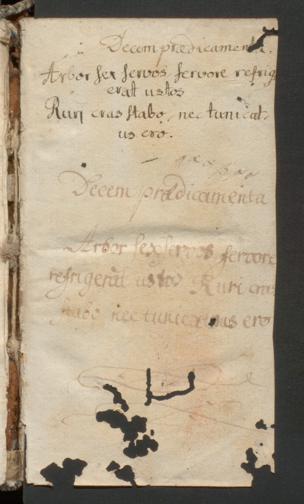 Decem prædicamenta.
Arbor sex servos fervore refrig
erat ustos
Ruri cras stabo, nec tunicat,
us ero.
Decem prædicamenta
Arbor sex servos fervore
refrigerat ustos Ruri cras
stabo nec tunicatus ero